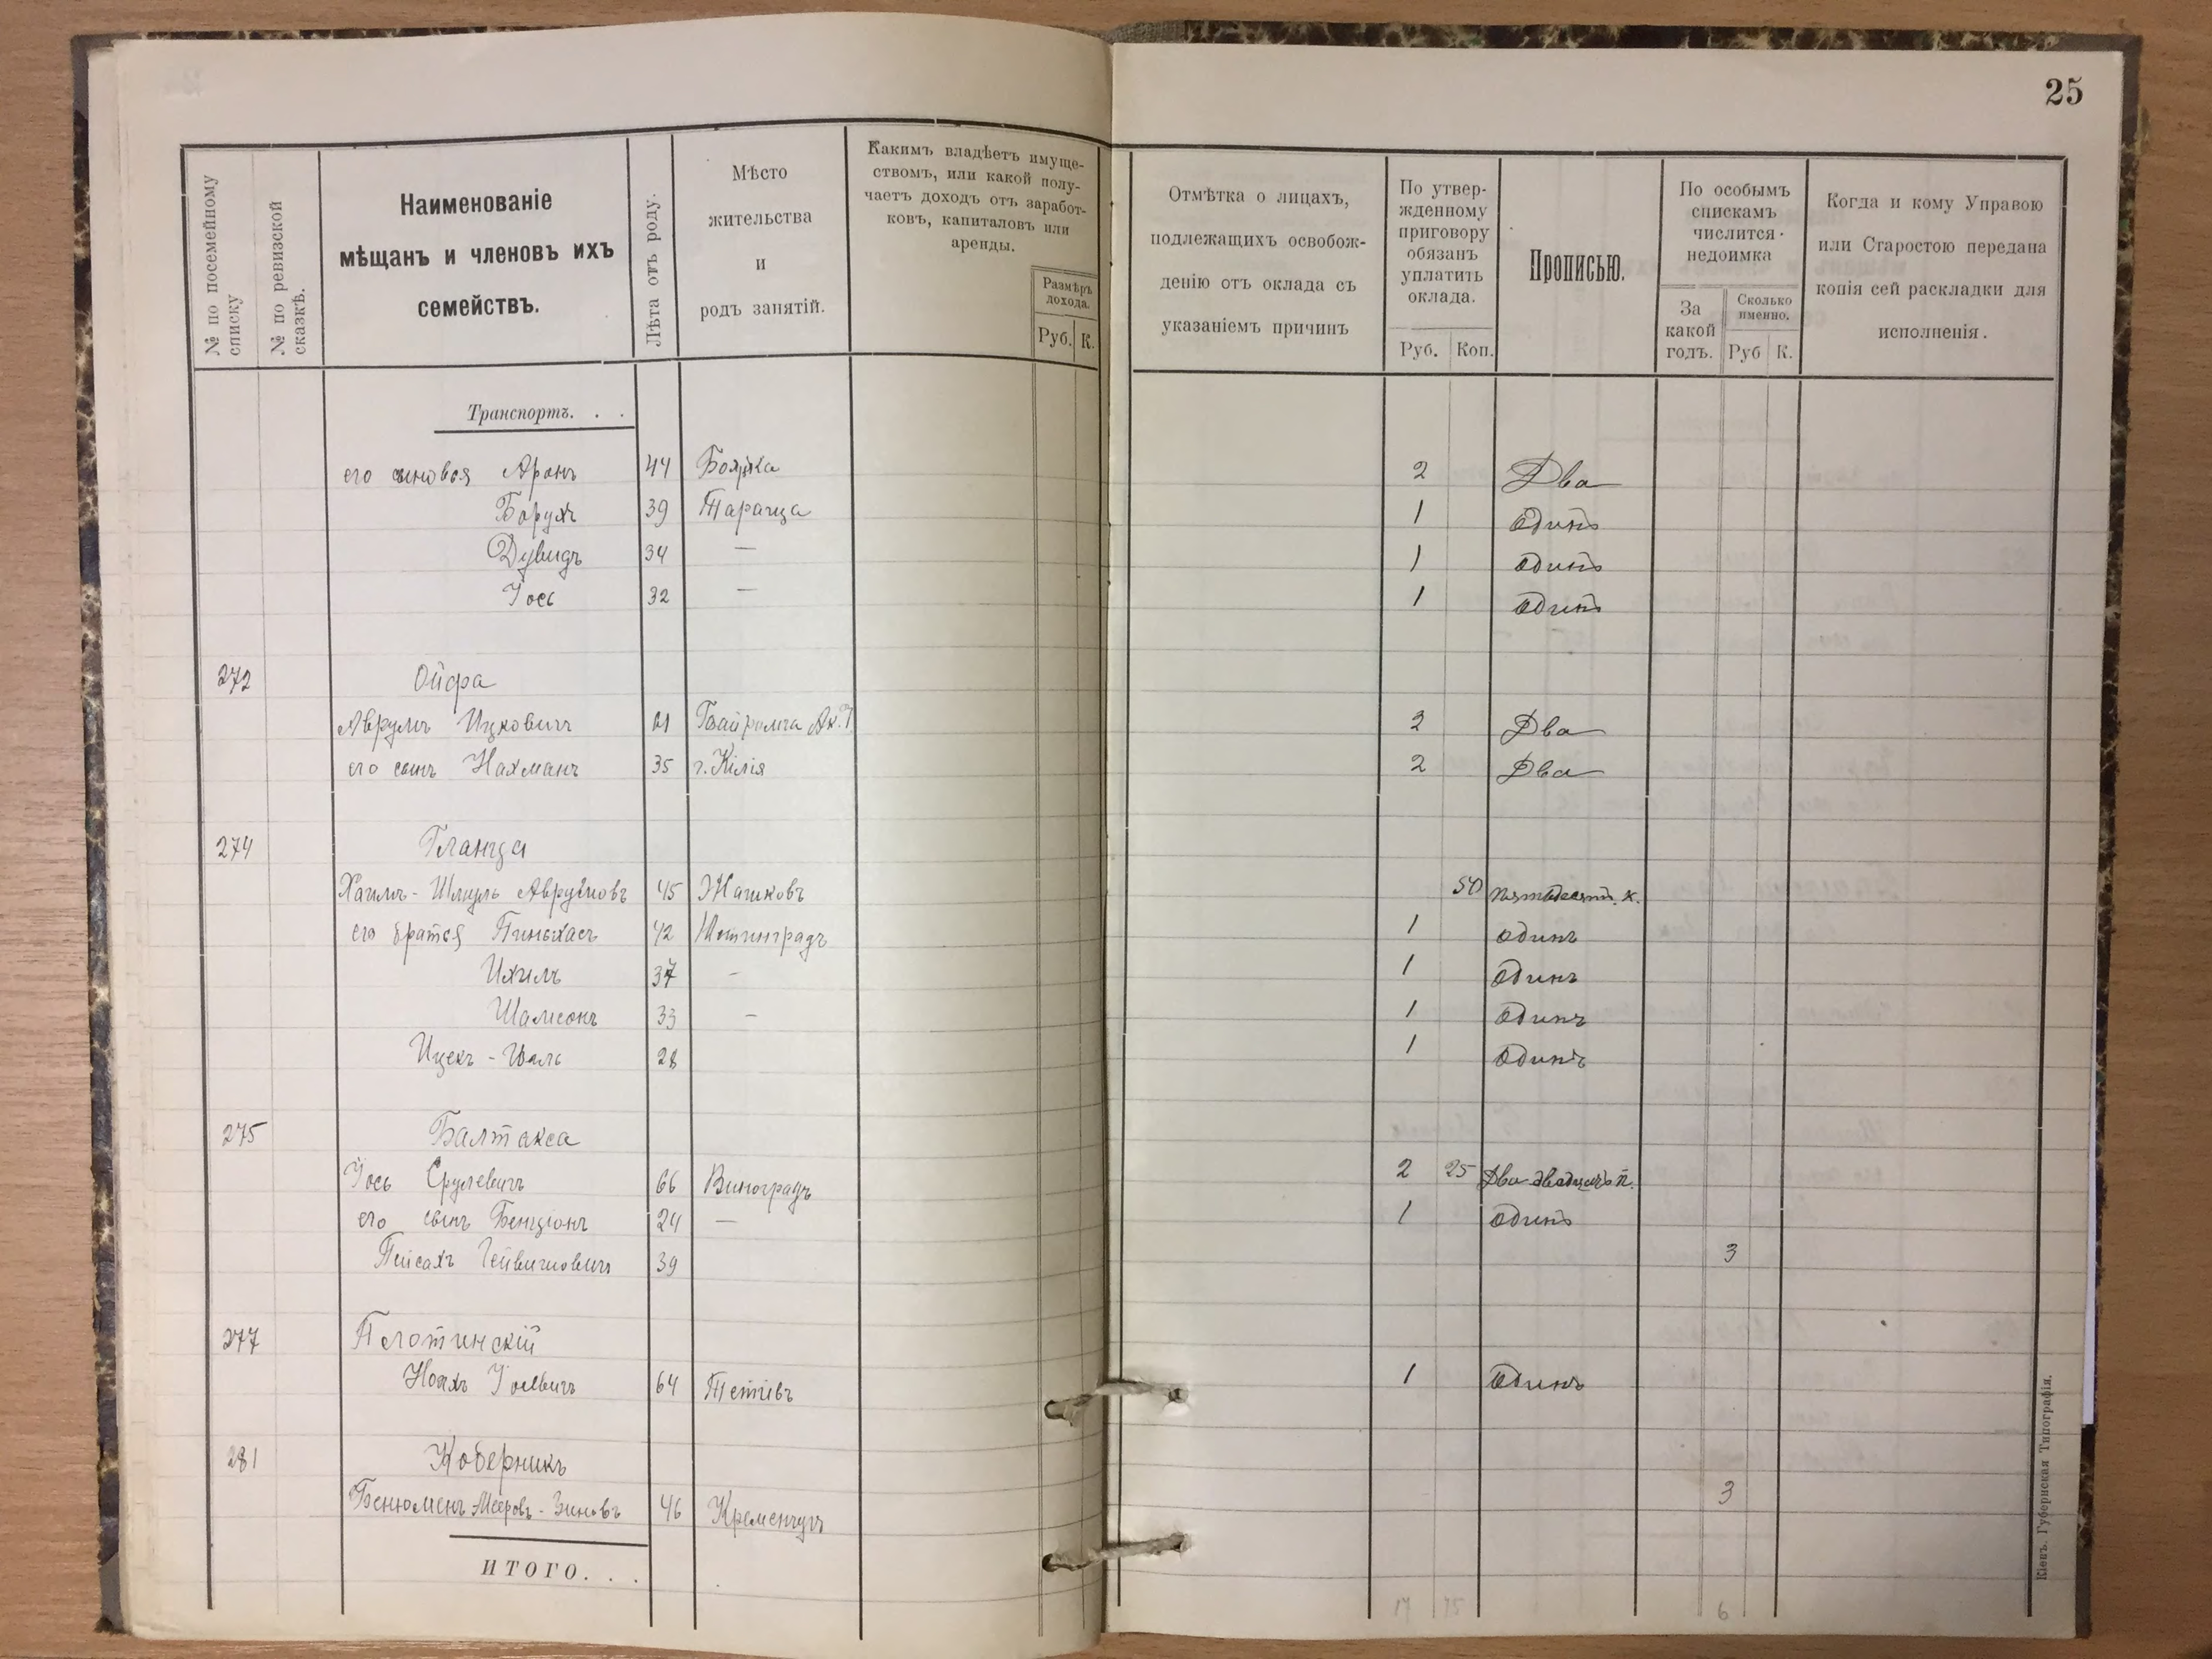 25
№ по посемейному списку
№ по ревизской сказкѣ.
Наименованіе
мѣщанъ и членовъ ихъ
семействъ.
Лѣта отъ роду.
Мѣсто
жительства
и
родъ занятій.
Какимъ владѣетъ имуще-
ствомъ, или какой полу-
чаетъ доходъ отъ заработ-
ковъ, капиталовъ или
аренды.
Размѣръ
дохода.
Руб. К.
Отмѣтка о лицахъ,
подлежащихъ освобож-
денію отъ оклада съ
указаніемъ причинъ
По утвер-
жденному
приговору
обязанъ
уплатить
оклада.
Руб. Коп.
Прописью.
По особымъ
спискамъ
числится
недоимка
За
какой
годъ.
Сколько
именно.
Руб К.
Когда и кому Управою
или Старостою передана
копія сей раскладки для
исполненія.
Транспортъ. . .
его сыновья Аронъ 44 Боярка 2 Два
Борухъ 39 Тараща 1 Одинъ
Дувидъ 34 — 1 Одинъ
Іось 32 — 1 Одинъ
272 Ойфа
Аврумъ Ицковичъ 61 Байрамча 2 Два
его сынъ Нахманъ 35 г. Кілія 2 Два
274 Гланца
Хаимъ-Шмуль Аврумовъ 45 Жашковъ 50 пятьдесятъ к.
его братья Пиньхасъ 42 1 один
Ихилъ 37 - 1 Одинъ
Шамсонъ 33 - 1 Одинъ
Ицекъ - 28 1 Одинъ
275 Балтакса
Іось Срулевичъ 66 Виноградъ 2 25 Два двадцать п.
его сынъ Бенціонъ 24 — 1 Одинъ
Пейсахъ 39 3
277 Плотинскій
Ноахъ Іосевичъ 64 Тетіевъ 1 Одинъ
281 Коберникъ
Бенюменъ Мееровъ-Зиновъ 46 Кременчугъ 3
ИТОГО. . .
17 75 6
Кіевъ. Губернская Типографія.